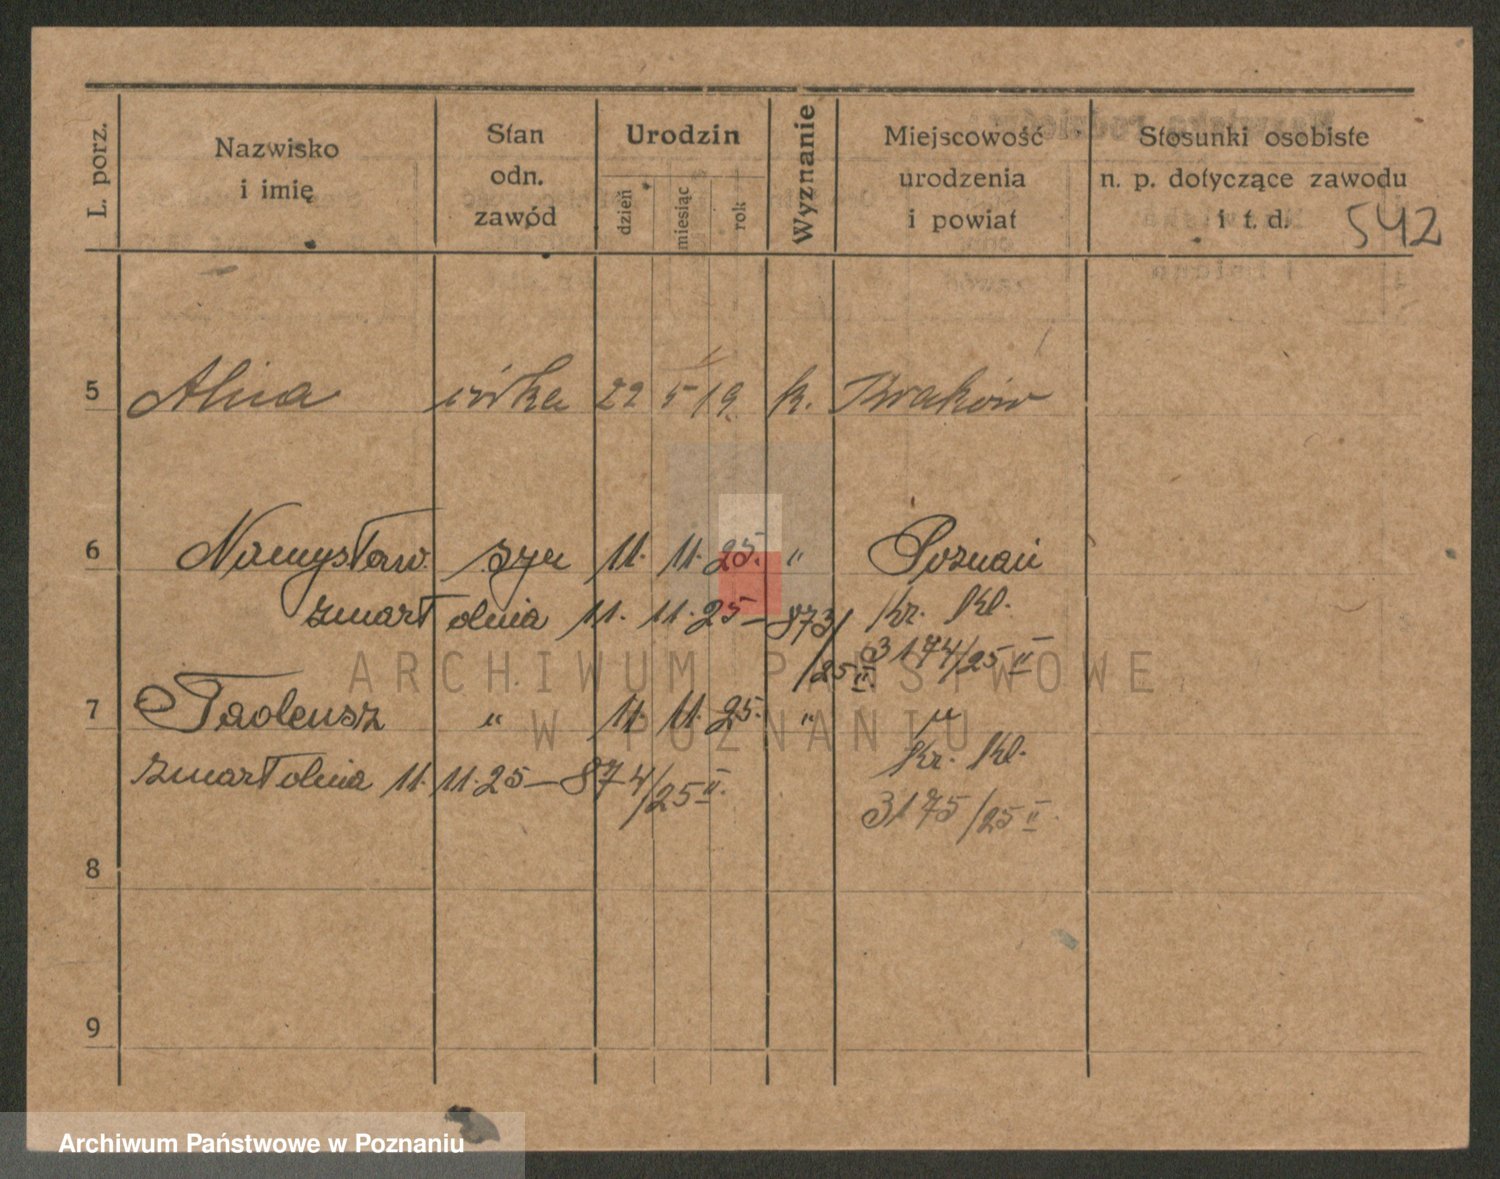 L. porz.
Nazwisko
i imię
Stan
odn.
zawód
Urodzin
dzień
miesiąc
rok
Wyznanie
Miejscowość
urodzenia
i powiat
Stosunki osobiste
n. p. dotyczące zawodu
i t. d.
542
5 Alina córka 22 5 19. k. Kraków
6 Namysław. syn 11. 11. 25. " Poznań
zmarł dnia 11. 11. 25 – 873/25 II Kr. Kl.
3174/25 II
7 Tadeusz " 11. 11. 25. " "
Kr. Kl.
zmarł dnia 11. 11. 25 – 874/25 II.
3175/25 II
8
9
ARCHIWUM PAŃSTWOWE
W POZNANIU
Archiwum Państwowe w Poznaniu